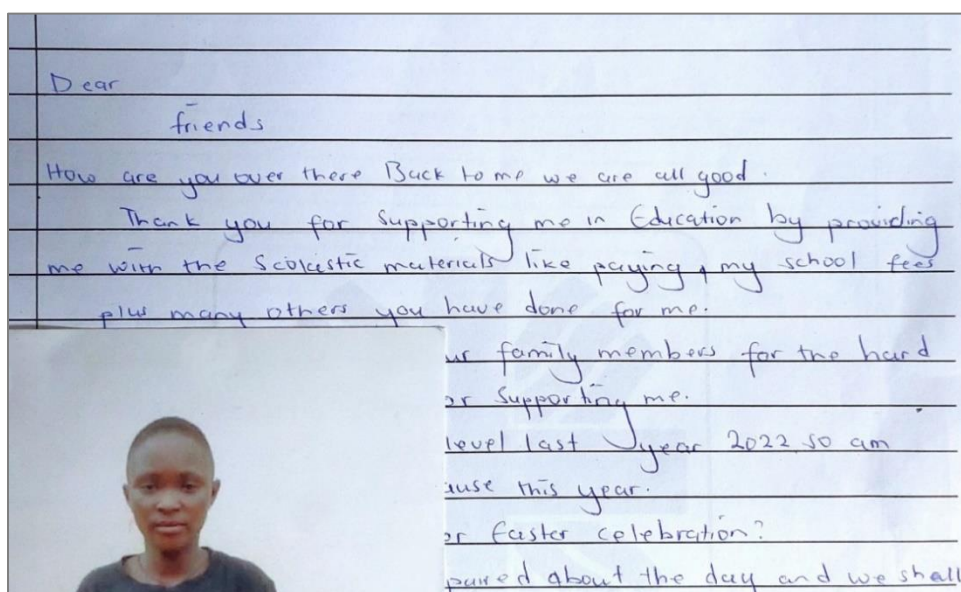 Dear
friends
How are you over there Back to me we are all good.
Thank you for supporting me in Education by providing
me with the Scolastic materials like paying my school fees
plus many others you have done for me.
ur family members for the hard
or supporting me.
level last year 2022 so am
ause this year.
or Easter celebration?
pared about the day and we shall